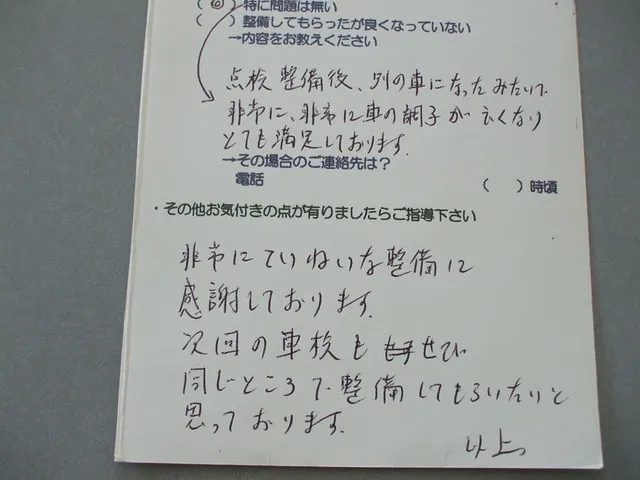 (◎)特に問題は無い
( )整備してもらったが良くなっていない
→内容をお教えください
点検整備後、別の車になったみたいで
非常に、非常に車の調子が良くなり
とても満足しております。
→その場合のご連絡先は?
電話 ( )時頃
・その他お気付きの点が有りましたらご指導下さい
非常にていねいな整備に
感謝しております。
次回の車検も ぜひ
同じところで整備してもらいたいと
思っております。
以上。